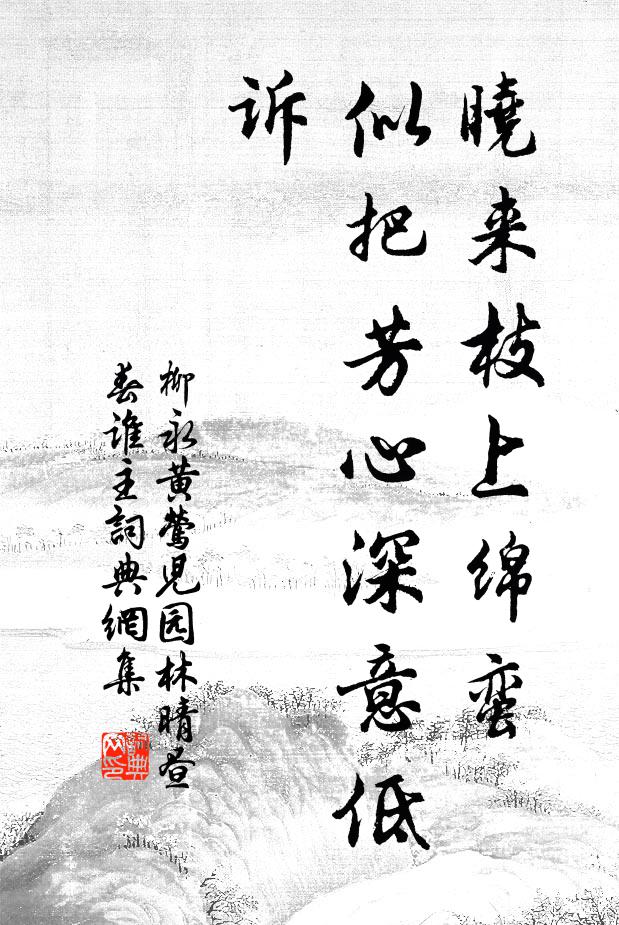 曉来枝上绵蛮
似把芳心深意低
诉
柳永黄鶯児园林晴昼
春谁主詞典網集